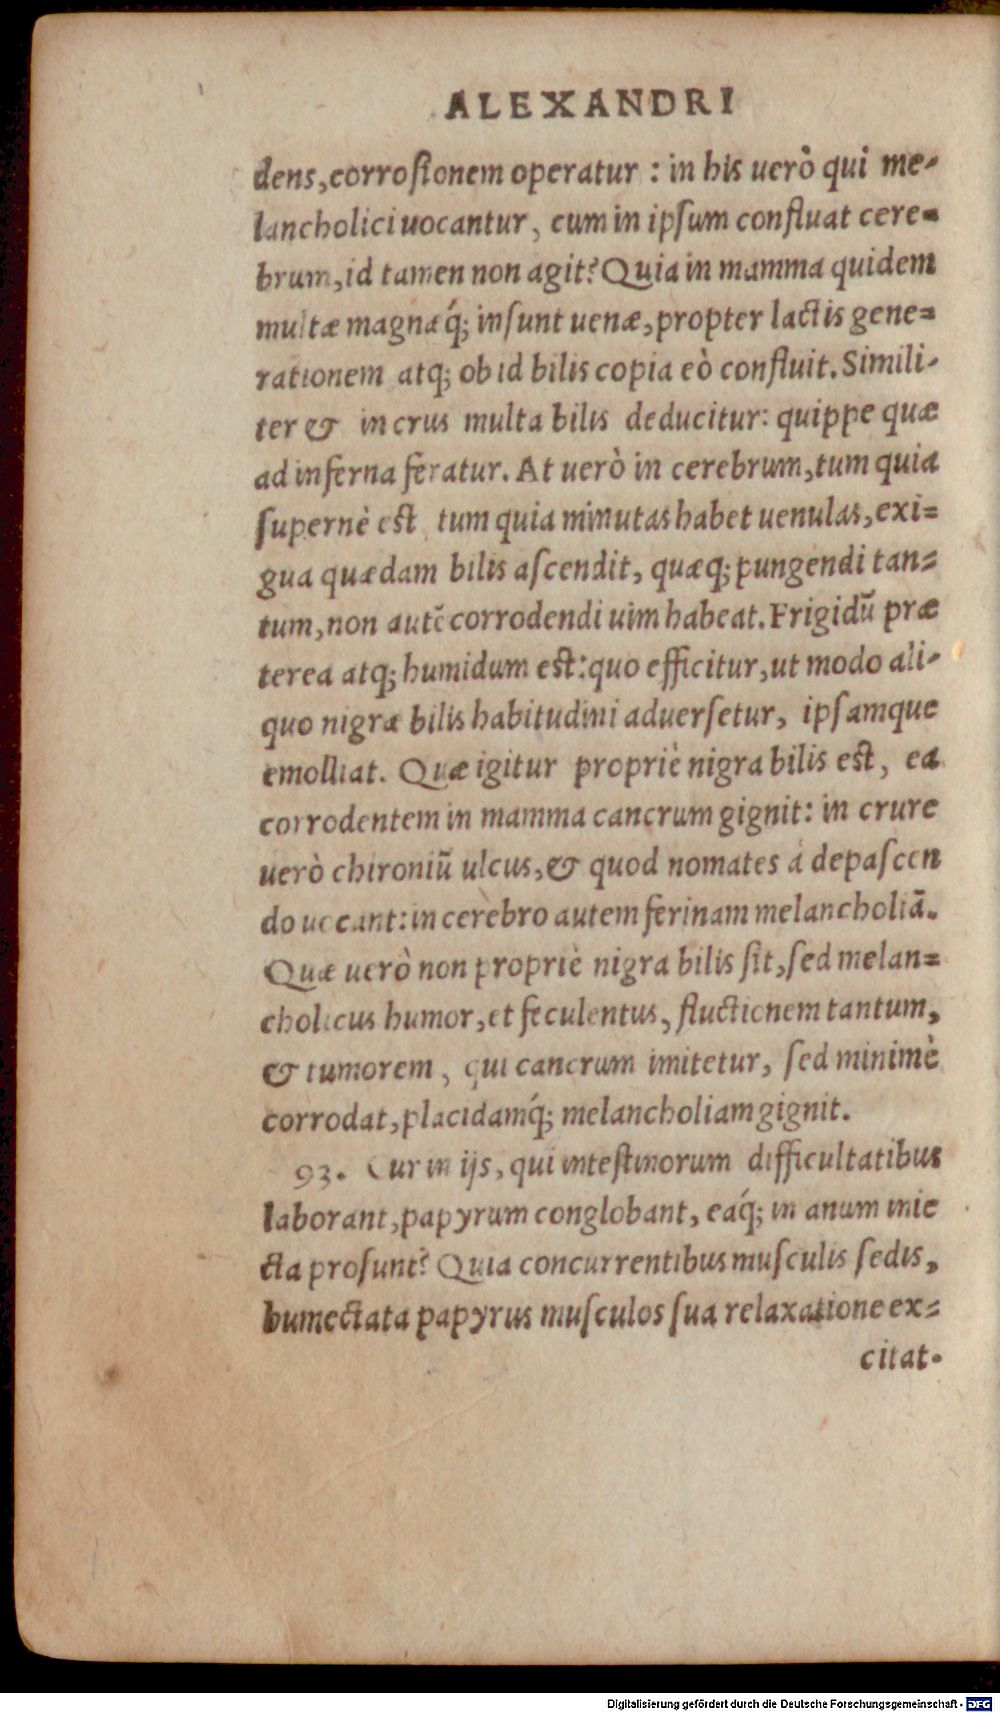 ALEXANDRI
dens, corrosionem operatur : in his uerò qui me-
lancholici uocantur, cum in ipsum confluat cere=
brum, id tamen non agit? Quia in mamma quidem
multæ magnæq́; insunt uenæ, propter lactis gene=
rationem atq; ob id bilis copia eò confluit. Simili-
ter & in crus multa bilis deducitur: quippe quæ
ad inferna feratur. At uerò in cerebrum, tum quia
supernè est tum quia minutas habet uenulas, exi=
gua quædam bilis ascendit, quæq; pungendi tan=
tum, non autē corrodendi uim habeat. Frigidū præ
terea atq; humidum est: quo efficitur, ut modo ali-
quo nigræ bilis habitudini aduersetur, ipsamque
emolliat. Quæ igitur propriè nigra bilis est, ea
corrodentem in mamma cancrum gignit: in crure
uerò chironiū ulcus, & quod nomates à depascen
do uocant: in cerebro autem ferinam melancholiā.
Quæ uerò non propriè nigra bilis sit, sed melan=
cholicus humor, et feculentus, fluctionem tantum,
& tumorem, qui cancrum imitetur, sed minimè
corrodat, placidamq́; melancholiam gignit.
93. Cur in ijs, qui intestinorum difficultatibus
laborant, papyrum conglobant, eaq́; in anum inie
cta prosunt? Quia concurrentibus musculis sedis,
humectata papyrus musculos sua relaxatione ex=
citat.
Digitalisierung gefördert durch die Deutsche Forschungsgemeinschaft - DFG